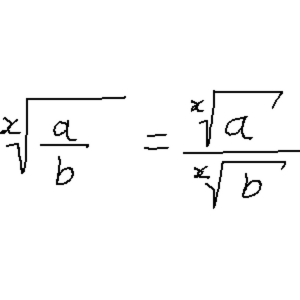 \sqrt[x]{\frac{a}{b}} = \frac{\sqrt[x]{a}}{\sqrt[x]{b}}